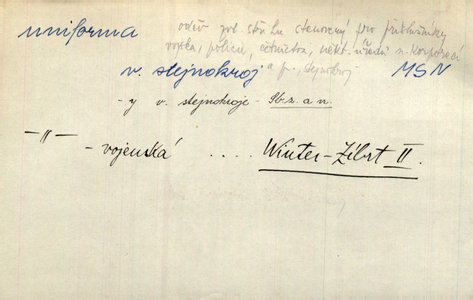 uniforma
oděv pol stálu stanovený pro příslušníky
vojska, policie, četnictva, někt. úřadů n. korporací
v. stejnokroj a p., stejnokroj MSN
-y v. stejnokroje - Sbz. a n.
-"- - vojenská .... Winter-Zíbrt II.